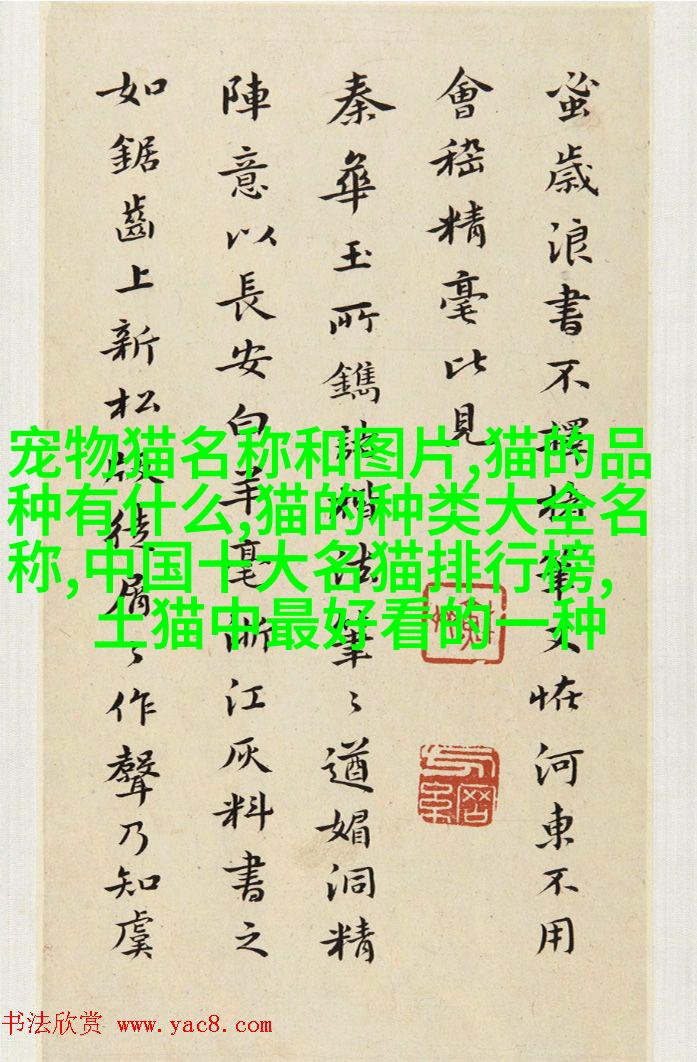 蚤歲浪書不擇格筆又恠河東不用
會稽精毫比見
秦華玉所鐫諸楷法筆〻遒媚洞精
陣意以長安白羊毫浙江灰料書之
如鋸齒上新松板徒屑〻作聲乃知虞
宠物猫名称和图片,猫的品
种有什么,猫的种类大全名
称,中国十大名猫排行榜,
土猫中最好看的一种
书法欣赏 www.yac8.com